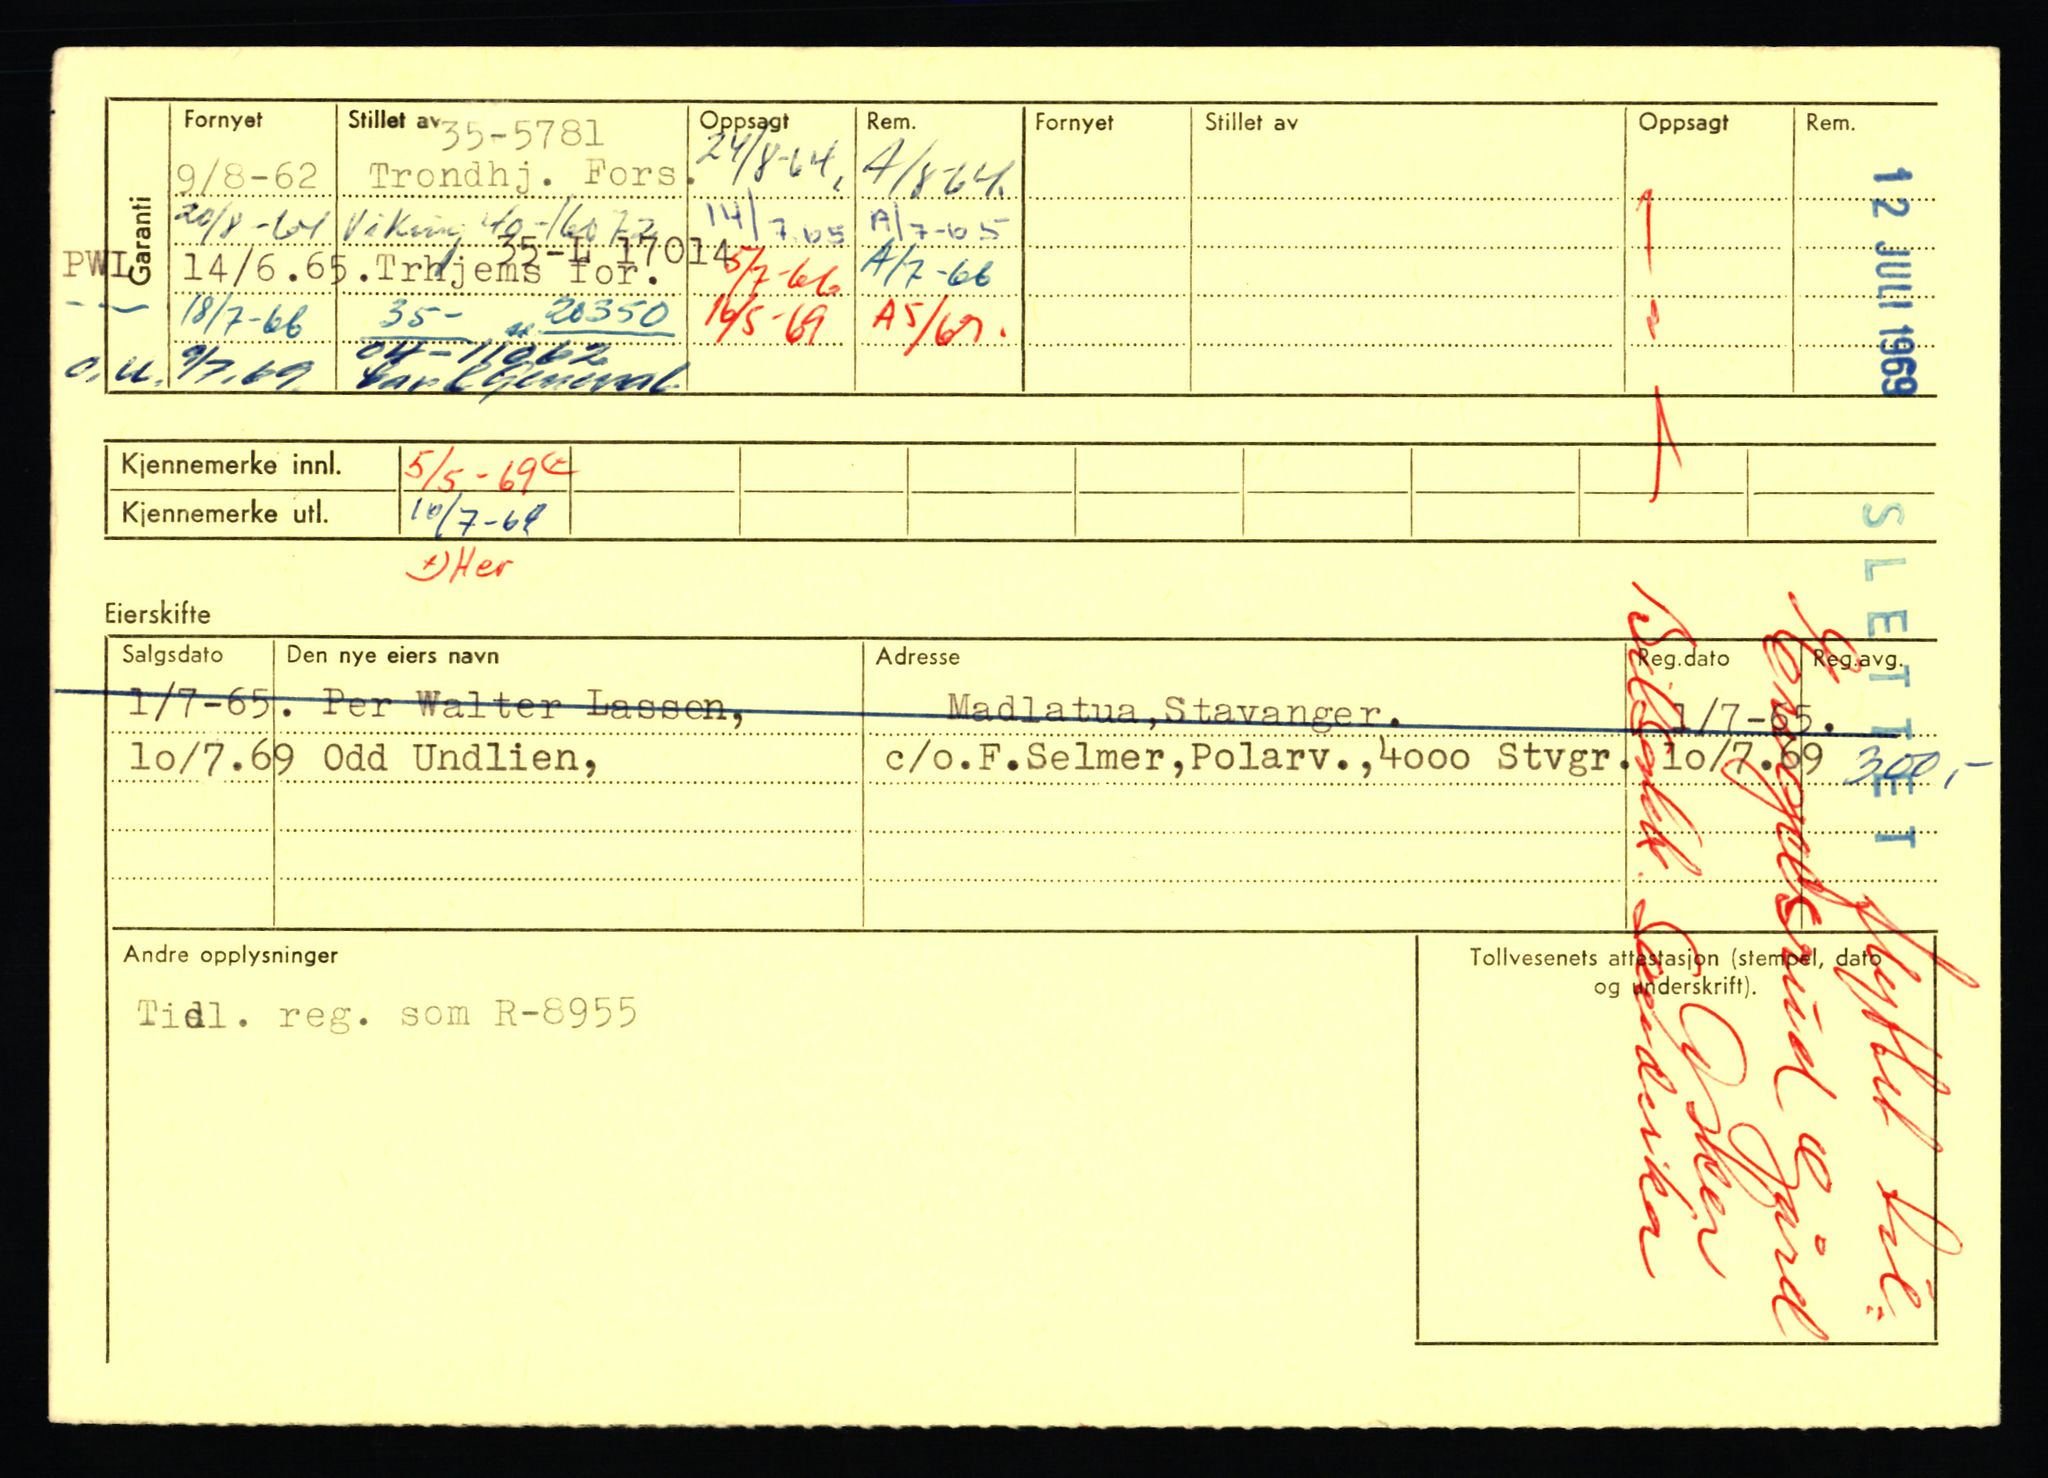 Garanti
Fornyet Stillet av Oppsagt Rem. Fornyet Stillet av Oppsagt Rem.
35-5781
9/8-62 Trondhj. Fors. 24/8-64. A/8-64.
20/8-64 Viking 40-16072 14/7.65 A/7-65
35-L 17014
PWL 14/6.65. Trhjems for. 5/7-66 A/7-66
18/7-66 35- " 20350 16/5-69 A5/69.
O.U. 9/7.69. 04-11062
12 JULI 1969
Kjennemerke innl. 5/5-69
Kjennemerke utl. 10/7-69
x) Her
SLETTET
Eierskifte
Salgsdato Den nye eiers navn Adresse Reg.dato Reg.avg.
1/7-65. Per Walter Lassen, Madlatua, Stavanger. 1/7-65.
1o/7.69 Odd Undlien, c/o.F.Selmer,Polarv.,4000 Stvgr. 1o/7.69 300,-
Andre opplysninger
Tidl. reg. som R-8955
Tollvesenets attestasjon (stempel, dato
og underskrift).
flyttet til:
Asker